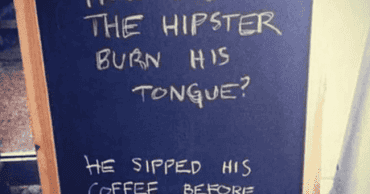 THE HIPSTER
BURN HIS
TONGUE?
HE SIPPED HIS
COFFEE BEFORE